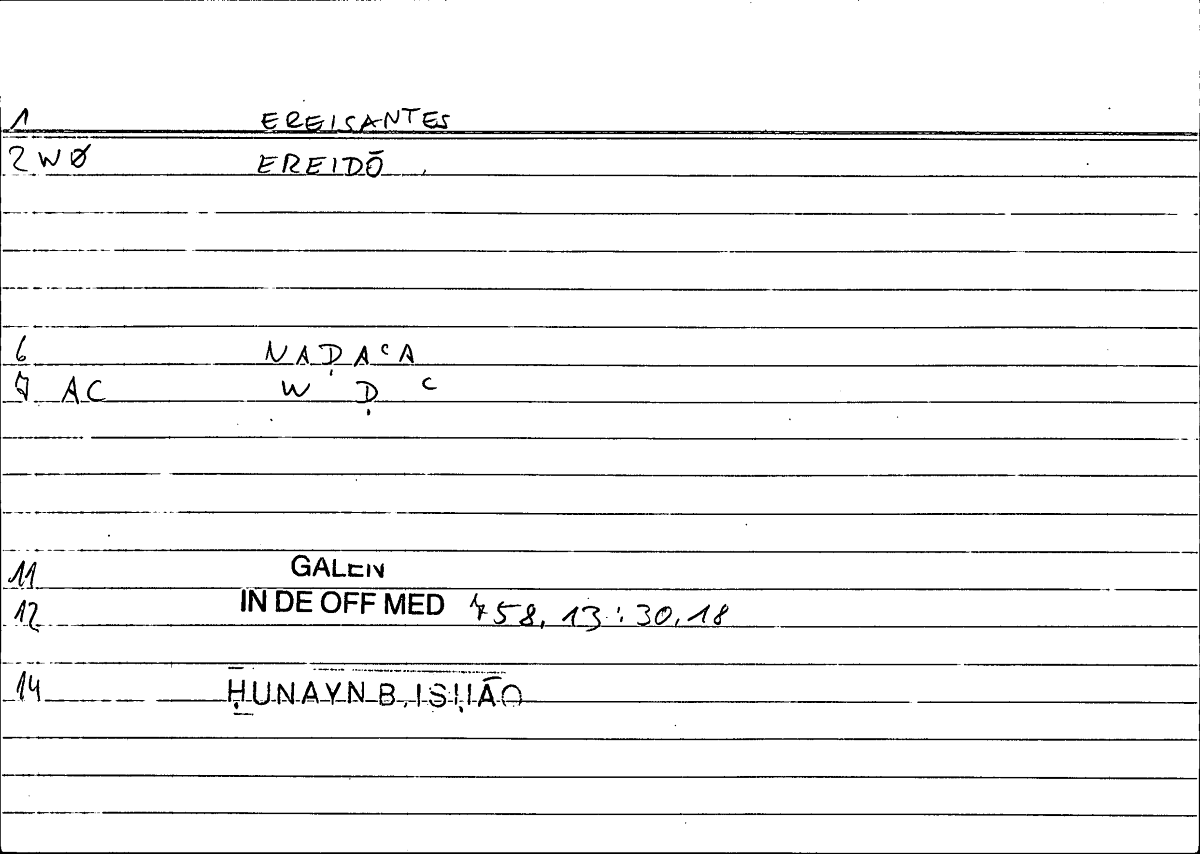 1 EREISANTES
2 WØ EREIDŌ
6 NAḌAᶜA
7 AC W Ḍ ᶜ
11 GALEN
12 IN DE OFF MED 758,13:30,18
14 ḤUNAYN B. ISḤĀQ